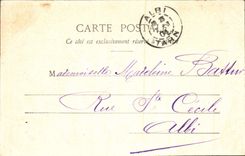 CARTE POSTALE
Ce côté est exclusivement réservé
ALBI
TARN
Mademoiselle Madeleine
Rue Ste Cécile
Albi